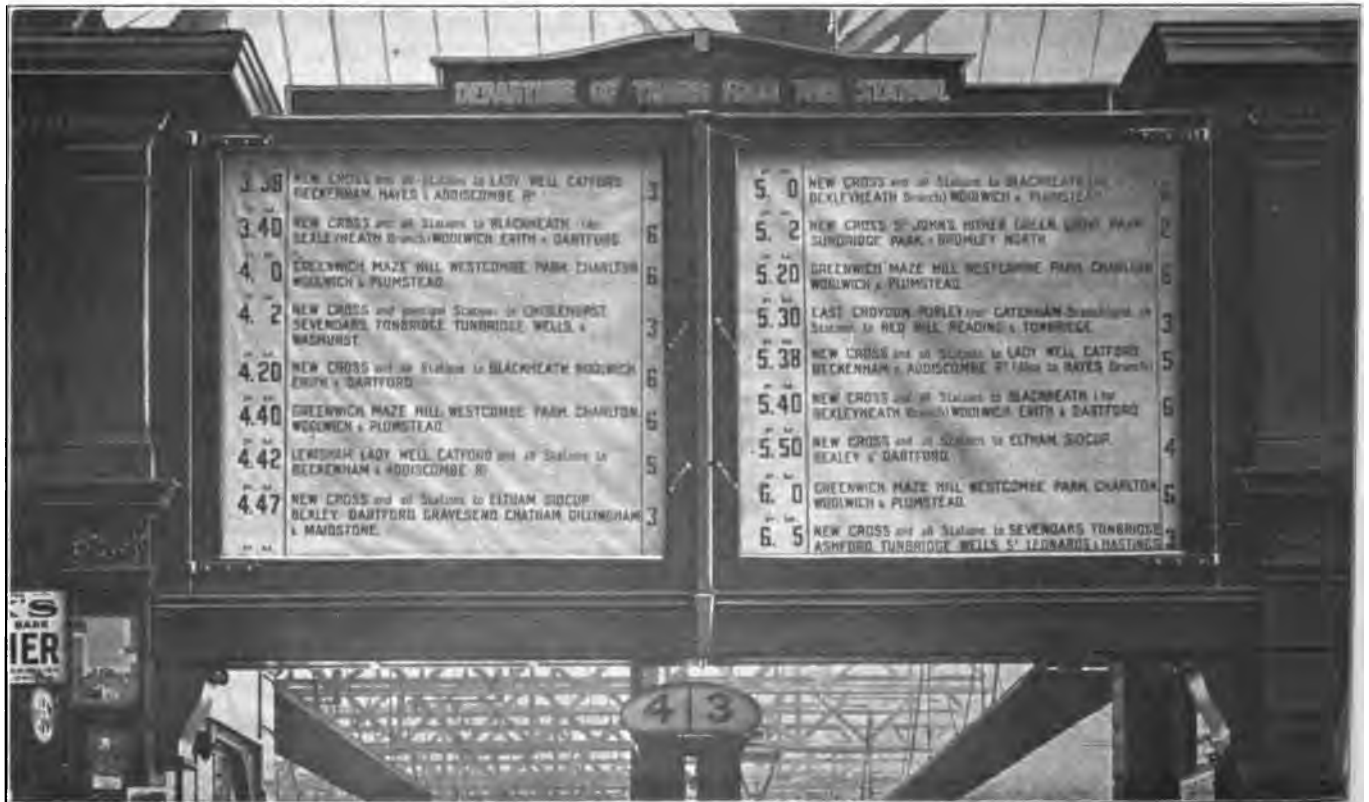 DEPARTURE OF TRAINS FROM THIS STATION.
3.38 NEW CROSS and all Stations to LADY WELL CATFORD 3
BECKENHAM, HAYES & ADDISCOMBE Rd
3.40 NEW CROSS and all Stations to BLACKHEATH (for 6
BEXLEYHEATH Branch) WOOLWICH ERITH & DARTFORD.
4. 0 GREENWICH MAZE HILL WESTCOMBE PARK CHARLTON 6
WOOLWICH & PLUMSTEAD.
4. 2 NEW CROSS and principal Stations to CHISLEHURST 3
SEVENOAKS, TONBRIDGE TUNBRIDGE WELLS, &
WADHURST.
4.20 NEW CROSS and all Stations to BLACKHEATH WOOLWICH 6
ERITH & DARTFORD.
4.40 GREENWICH MAZE HILL WESTCOMBE PARK CHARLTON 6
WOOLWICH & PLUMSTEAD.
4.42 LEWISHAM LADY WELL CATFORD and all Stations to 5
BECKENHAM & ADDISCOMBE Rd
4.47 NEW CROSS and all Stations to ELTHAM SIDCUP 3
BEXLEY DARTFORD GRAVESEND CHATHAM GILLINGHAM
& MAIDSTONE.
5. 0 NEW CROSS and all Stations to BLACKHEATH (for
BEXLEYHEATH Branch) WOOLWICH & PLUMSTEAD.
5. 2 NEW CROSS St JOHN'S HITHER GREEN, GROVE PARK 2
SUNDRIDGE PARK & BROMLEY NORTH.
5.20 GREENWICH MAZE HILL WESTCOMBE PARK CHARLTON 6
WOOLWICH & PLUMSTEAD.
5.30 EAST CROYDON PURLEY (for CATERHAM Branch) and all 3
Stations to RED HILL READING & TONBRIDGE.
5.38 NEW CROSS and all Stations to LADY WELL CATFORD 5
BECKENHAM & ADDISCOMBE Rd (Also to HAYES Branch)
5.40 NEW CROSS and all Stations to BLACKHEATH (for 6
BEXLEYHEATH Branch) WOOLWICH ERITH & DARTFORD
5.50 NEW CROSS and all Stations to ELTHAM SIDCUP, 4
BEXLEY & DARTFORD.
6. 0 GREENWICH MAZE HILL WESTCOMBE PARK CHARLTON 6
WOOLWICH & PLUMSTEAD.
6. 5 NEW CROSS and all Stations to SEVENOAKS TONBRIDGE 3
ASHFORD TUNBRIDGE WELLS St LEONARDS & HASTINGS
K'S
BARK
IER
4 3